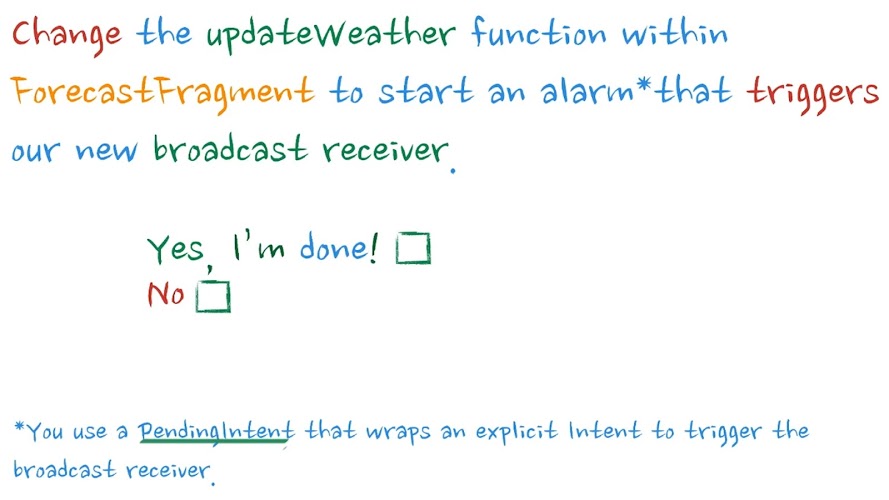 Change the updateWeather function within
ForecastFragment to start an alarm*that triggers
our new broadcast receiver.
Yes, I'm done!
No
*You use a PendingIntent that wraps an explicit Intent to trigger the
broadcast receiver.